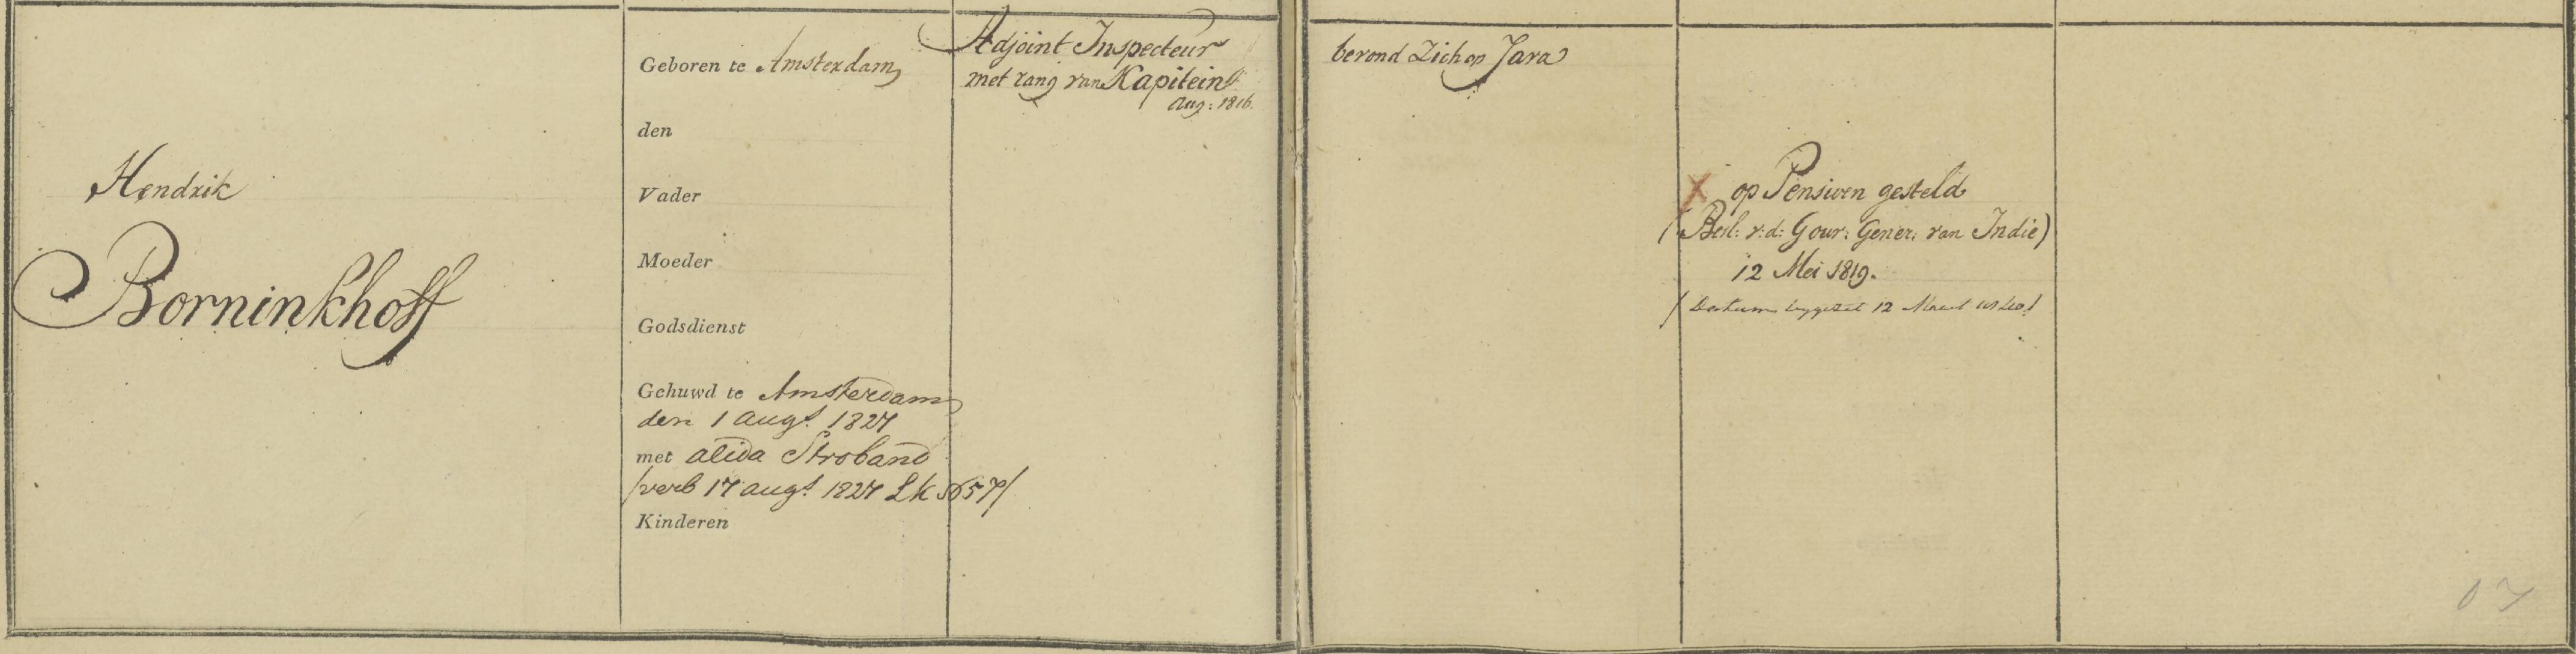 Hendrik
Borninkhoff
Geboren te Amsterdam
den
Vader
Moeder
Godsdienst
Gehuwd te Amsterdam
den 1 augt 1827
met alida Stroband
/verb 17 augt 1827 LK N 57/
Kinderen
Adjoint Inspecteur
met rang van Kapitein
Aug: 1816.
bevond Zich op Java
X op Pensioen gesteld
(Besl: v:d: Gouv: Gener: van Indie)
12 Mei 1819.
12 Maart